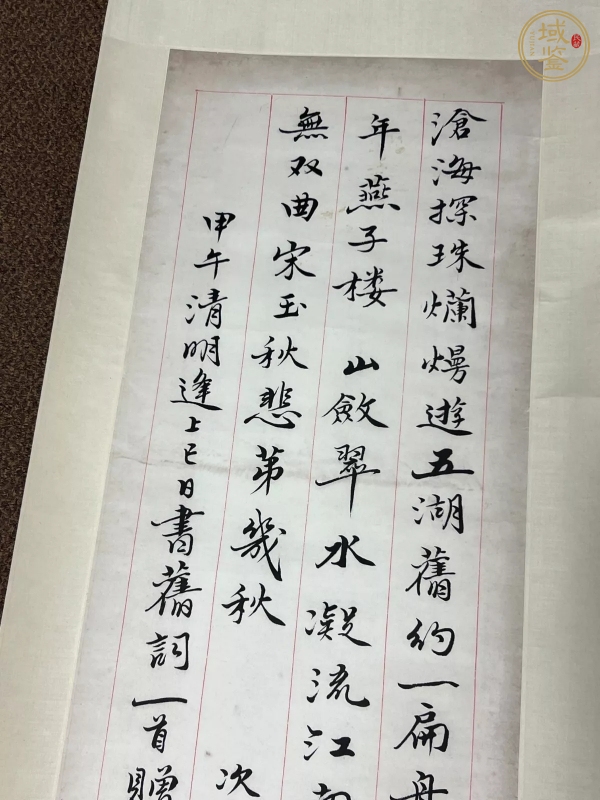 滄海探珠爛熳遊五湖舊約一扁舟
年燕子楼山斂翠水凝流江南
無双曲宋玉秋悲第幾秋
次
甲午清明逢上巳日書舊詞一首贈
域鉴